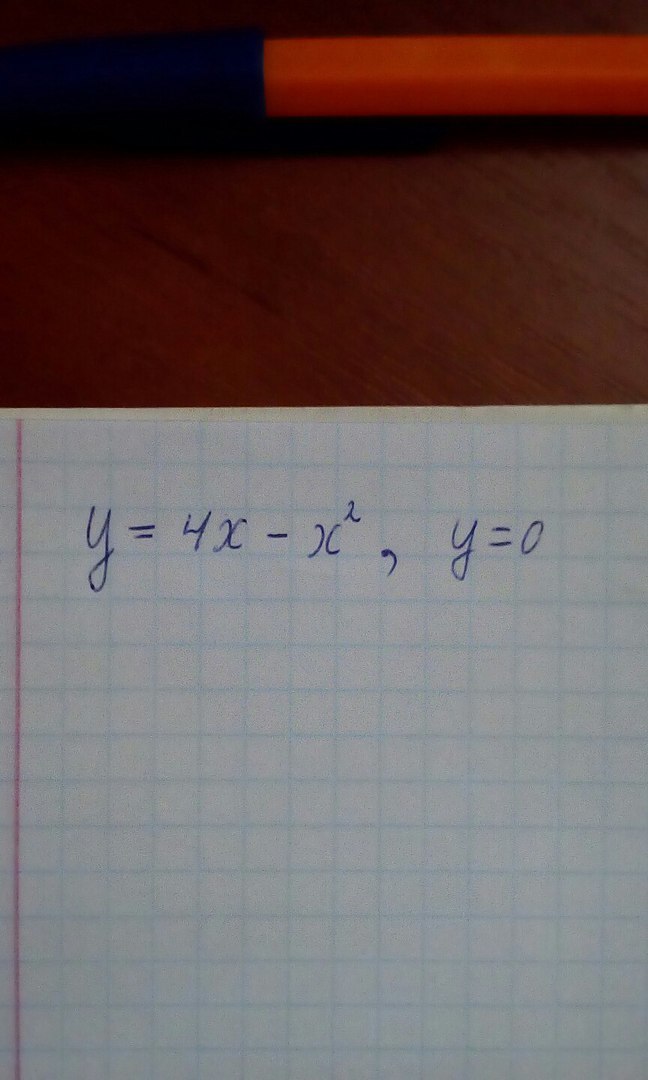 y = 4x - x², y = 0